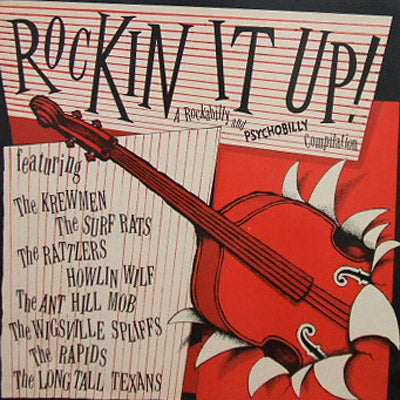 ROCKIN IT UP!
A Rockabilly and PSYCHOBILLY Compilation
featuring
The KREWMEN
The SURF RATS
The RATTLERS
HOWLIN WILF
The ANT HILL MOB
The WIGSVILLE SPLIFFS
The RAPIDS
The LONG TALL TEXANS